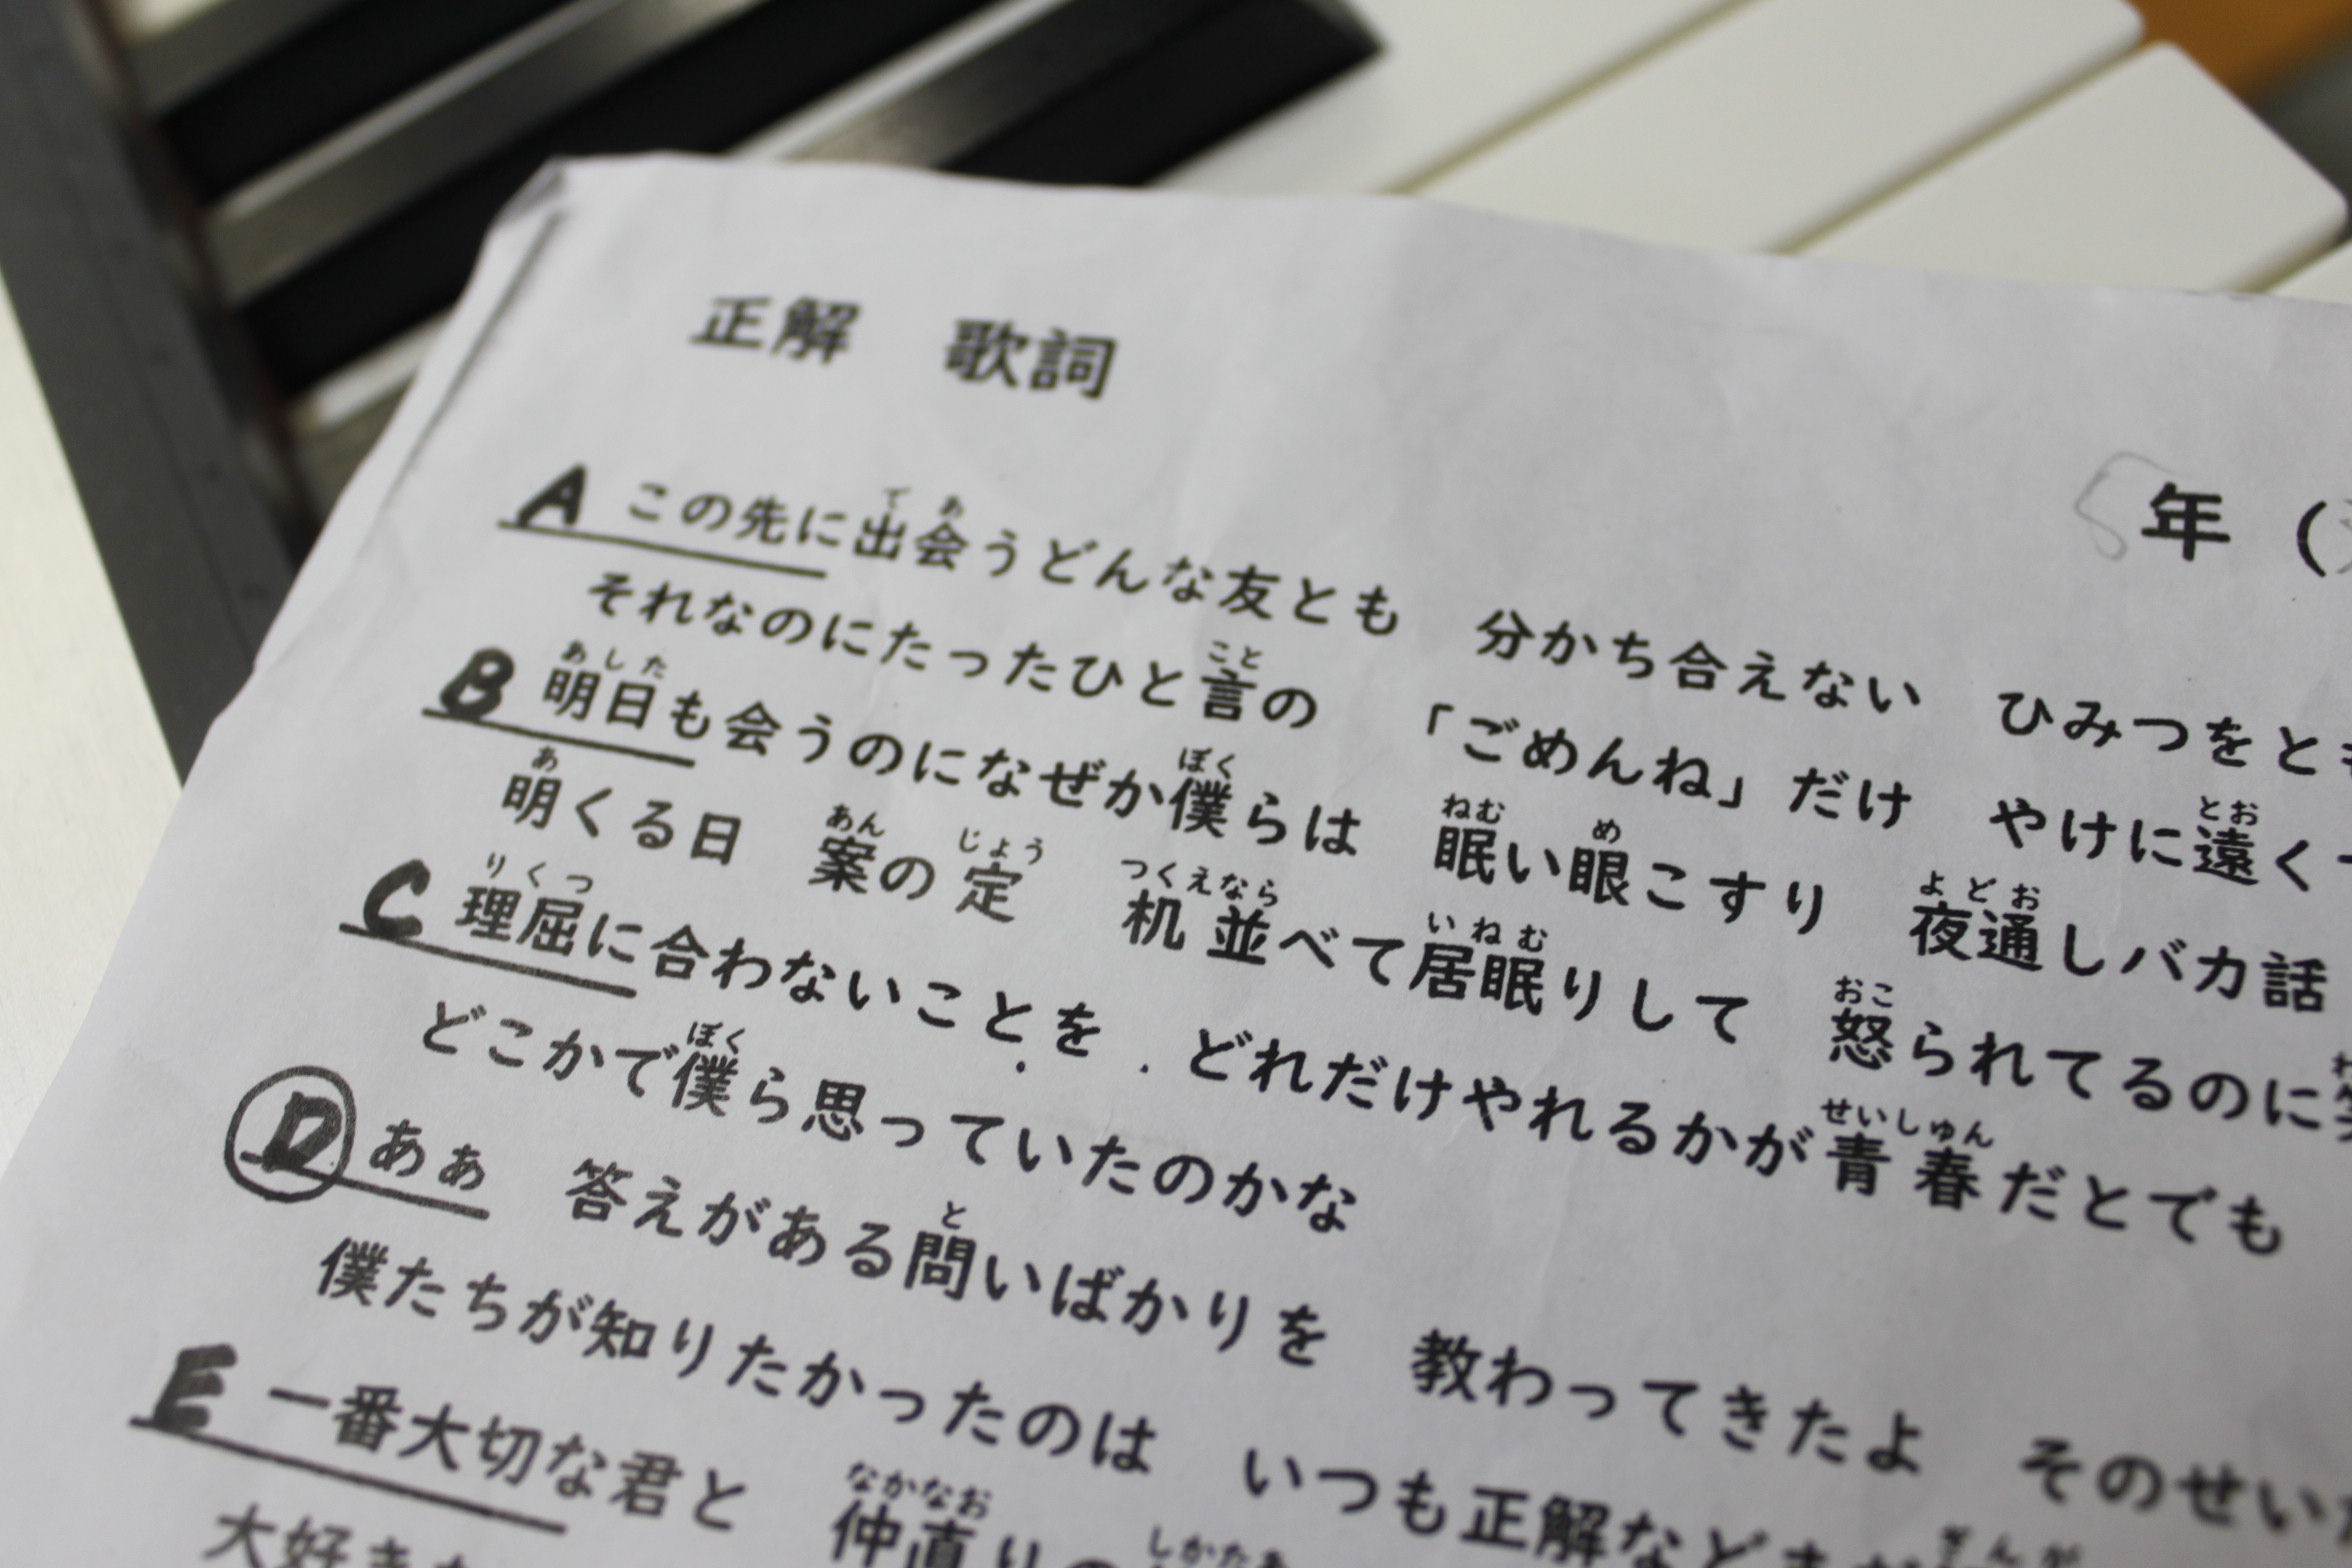 正解　歌詞
5年（
A この先に出会うどんな友とも　分かち合えない　ひみつをと
それなのにたったひと言の　「ごめんね」だけ　やけに遠く
B 明日も会うのになぜか僕らは　眠い眼こすり　夜通しバカ話
明くる日　案の定　机並べて居眠りして　怒られてるのに
C 理屈に合わないことを　どれだけやれるかが青春だとでも
どこかで僕ら思っていたのかな
D あぁ　答えがある問いばかりを　教わってきたよ　そのせい
僕たちが知りたかったのは　いつも正解など
E 一番大切な君と　仲直り
大好き